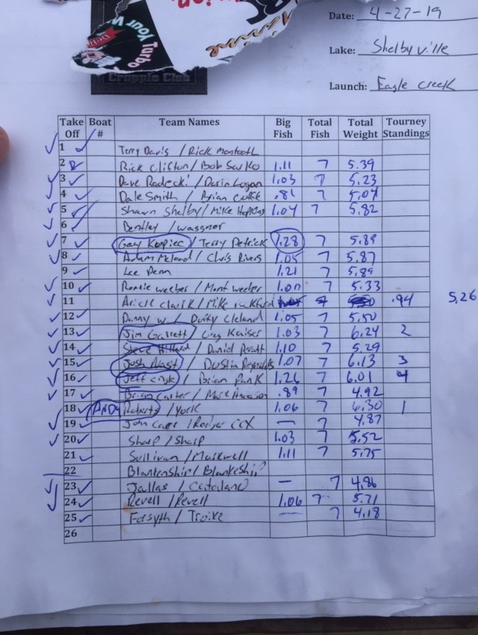 Your
Turbo
Marine
Crappie Club
Date: 4-27-19
Lake: Shelbyville
Launch: Eagle Creek
Take Off Boat # Team Names Big Fish Total Fish Total Weight Tourney Standings
1 Terry Davis / Rick
2 Rick Clifton / Bob 1.11 7 5.39
3 Dave / Darin Logan 1.03 7 5.23
4 Dale Smith / Brian .81 7 5.04
5 Shawn Shelby / Mike Hopkins 1.04 7 5.82
6 Bentley / Waggner
7 Gary / Terry 1.28 7 5.89
8 Adam / Chris Rivers 1.05 7 5.87
9 Lee Penn 1.21 7 5.89
10 Ronnie Weeber / Weeber 1.00 7 5.33
11 Clark / Mike 7 .94 5.26
12 Danny W / Cleland 1.05 7 5.50
13 Jim / Greg Kaiser 1.03 7 6.24 2
14 / Daniel 1.10 7 5.29
15 Josh / Dustin Reynolds 1.07 7 6.13 3
16 Jeff / Brian 1.26 7 6.01 4
17 Brian Carter / Mark .89 7 4.92
18 Andy Roberts / York 1.06 7 6.30 1
19 John / — 7 4.87
20 Sharp / Sharp 1.03 7 5.52
21 Sullivan / Maxwell 1.11 7 5.75
22 Blankenship / Blankenship
23 Dallas / Catalano — 7 4.86
24 Revell / Revell 1.06 7 5.71
25 Forsyth / — 7 4.18
26